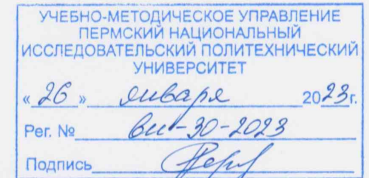 УЧЕБНО-МЕТОДИЧЕСКОЕ УПРАВЛЕНИЕ
ПЕРМСКИЙ НАЦИОНАЛЬНЫЙ
ИССЛЕДОВАТЕЛЬСКИЙ ПОЛИТЕХНИЧЕСКИЙ
УНИВЕРСИТЕТ
«26» января 2023г.
Рег. № вн-30-2023
Подпись